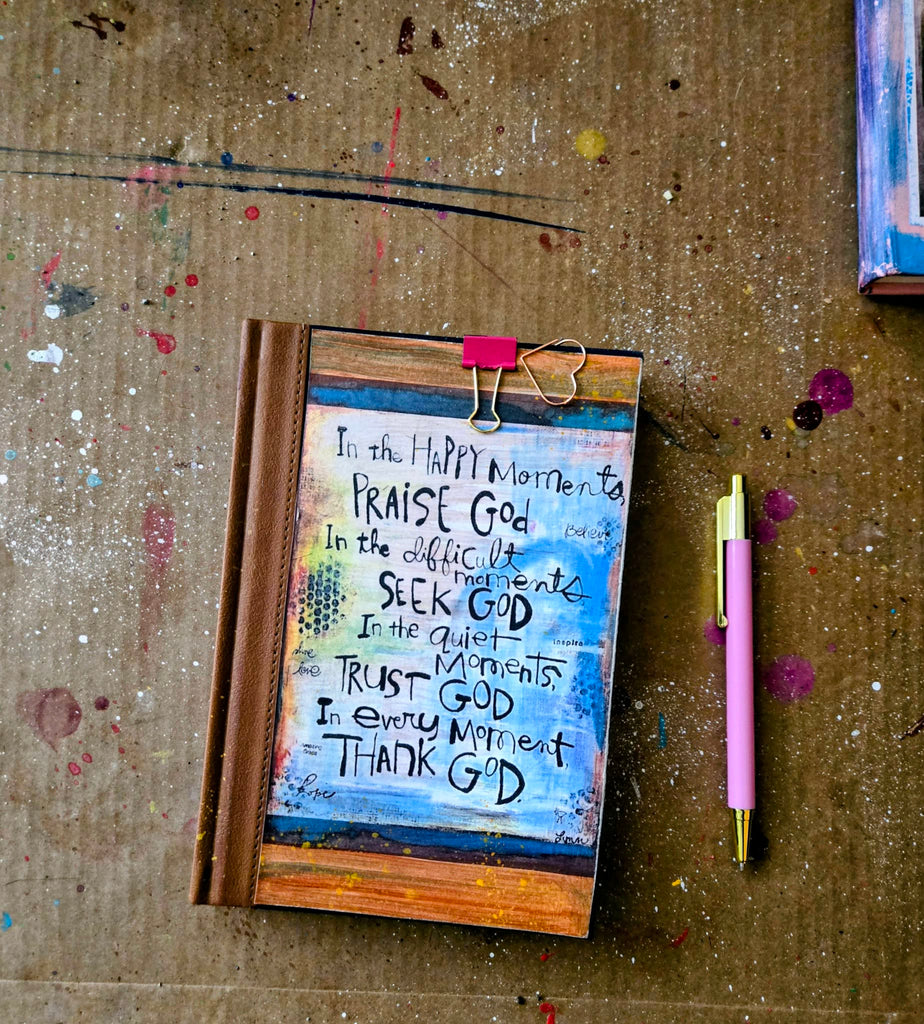 In the HAPPY Moments,
PRAISE God
Believe
In the difficult
moments
SEEK GOD
In the quiet
inspire
Moments,
love
TRUST GOD
In every Moment,
THANK GOD.
hope
Lynn